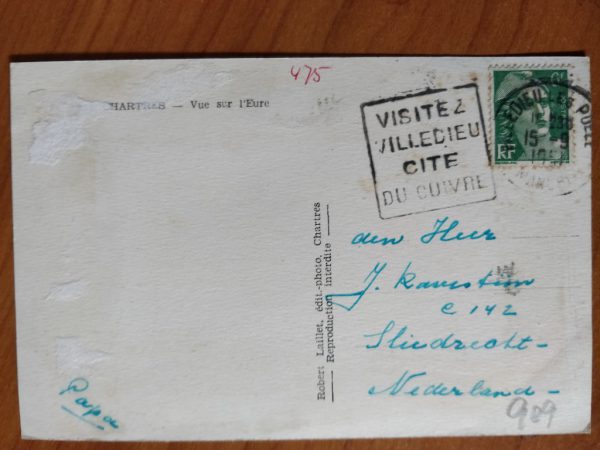 475
CHARTRES — Vue sur l'Eure
VISITEZ
VILLEDIEU
CITE
DU CUIVRE
VILLEDIEU-LES-POELES
15-9
MANCHE
RF
Robert Laillet, édit.-photo, Chartres
Reproduction interdite
den Heer
J. Ravestein
C 142
Sliedrecht-
Nederland-
Papa
989